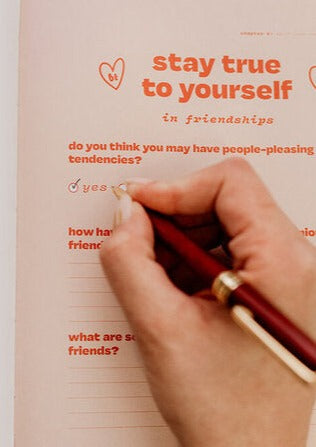 bt
stay true
to yourself
in friendships
do you think you may have people-pleasing
tendencies?
yes
how
friend
what are
friends?